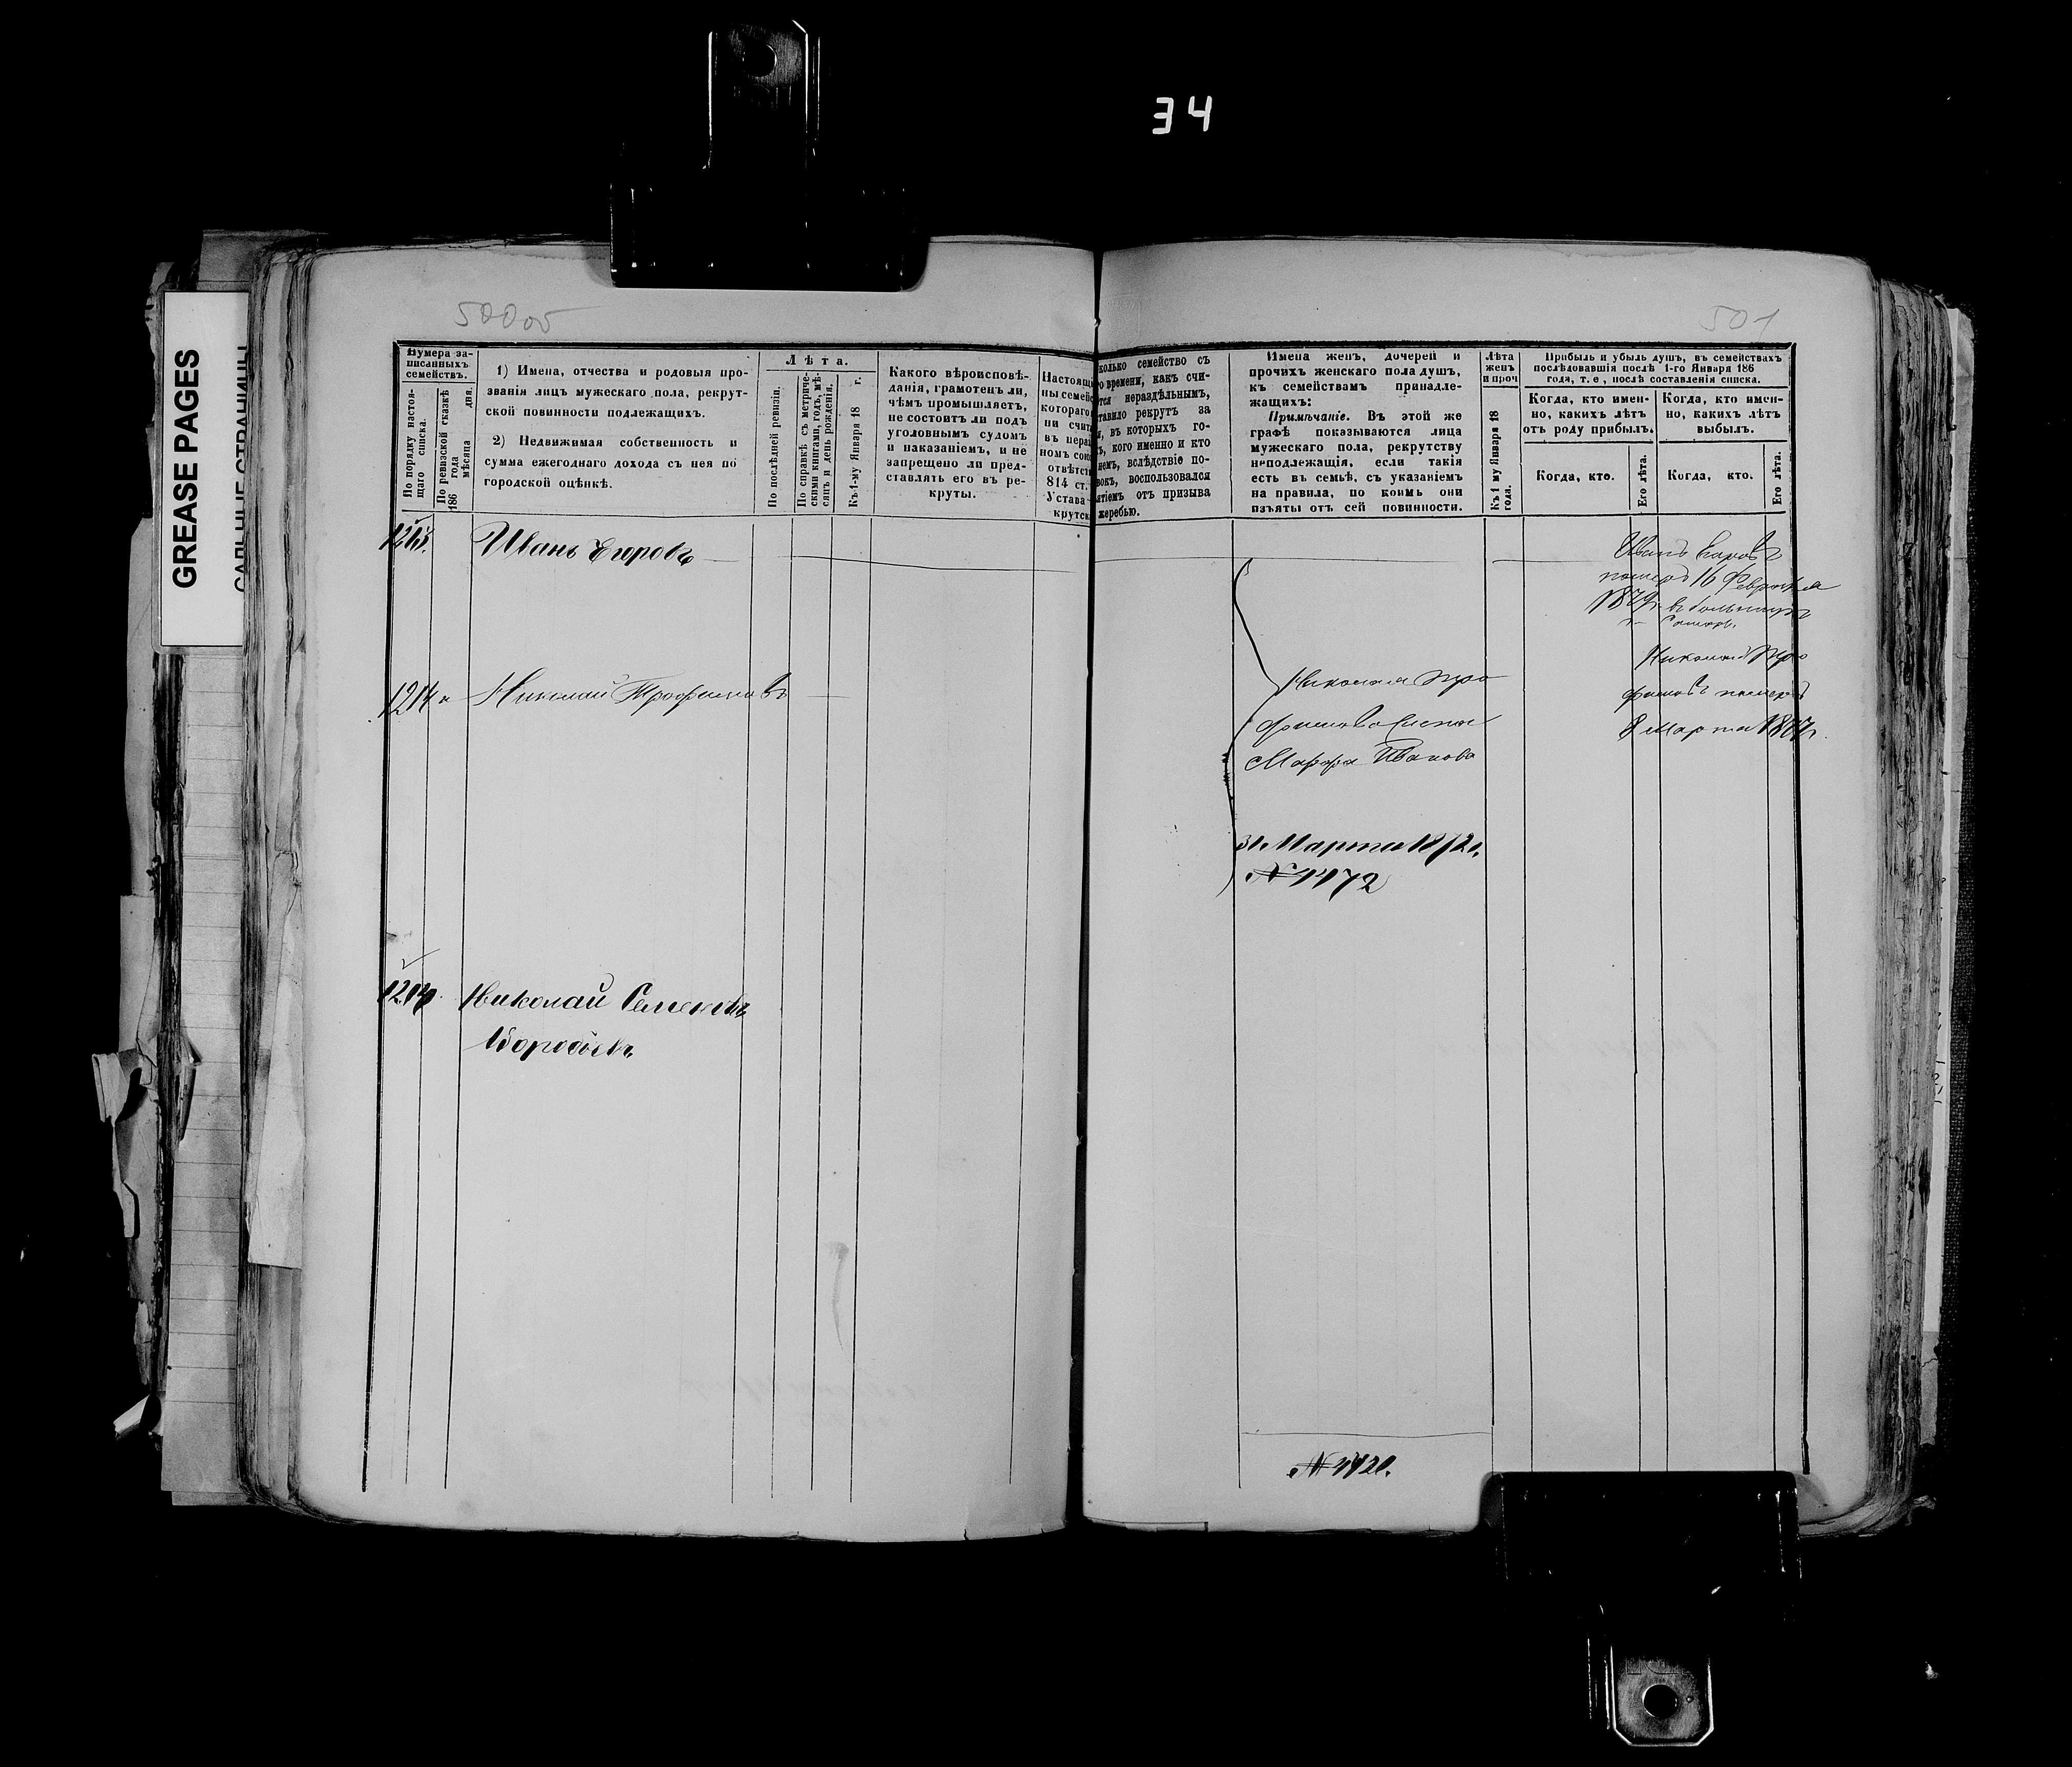 34
GREASE PAGES
САЛЬНЫЕ СТРАНИЦЫ
501
Нумера за-
писанныхъ
семействъ.
По порядку настоя-
щаго списка.
По ревизской сказкѣ
186 года
мѣсяца дня.
1) Имена, отчества и родовыя про-
званія лицъ мужескаго пола, рекрут-
ской повинности подлежащихъ.
2) Недвижимая собственность и
сумма ежегоднаго дохода съ нея по
городской оцѣнкѣ.
Лѣта.
По послѣдней ревизіи.
По справкѣ съ метриче-
скими книгами, годъ, мѣ-
сяцъ и день рожденія.
Къ 1-му Января 18 г.
Какого вѣроисповѣ-
данія, грамотенъ ли,
чѣмъ промышляетъ,
не состоитъ ли подъ
уголовнымъ судомъ
и наказаніемъ, и не
запрещено ли пред-
ставлять его въ ре-
круты.
Настоящ
ны семейс
котораго
ни счит
въ нераз
номъ сою
отвѣтст
814 ст.
Устава
крутск
колько семейство съ
го времени, какъ счи-
тся нераздѣльнымъ,
тавило рекрутъ за
и, въ которыхъ го-
ъ, кого именно и кто
немъ, вслѣдствіе по-
вокъ, воспользовался
ятіемъ отъ призыва
жеребью.
Имена женъ, дочерей и
прочихъ женскаго пола душъ,
къ семействамъ принадле-
жащихъ:
Примѣчаніе. Въ этой же
графѣ показываются лица
мужескаго пола, рекрутству
неподлежащія, если такія
есть въ семьѣ, съ указаніемъ
на правила, по коимъ они
изъяты отъ сей повинности.
Лѣта
женъ
и проч
Къ 1 му Января 18
года.
Прибыль и убыль душъ, въ семействахъ
послѣдовавшія послѣ 1-го Января 186
года, т. е., послѣ составленія списка.
Когда, кто имен-
но, какихъ лѣтъ
отъ роду прибылъ.
Когда, кто имен-
но, какихъ лѣтъ
выбылъ.
Когда, кто.
Его лѣта.
Когда, кто.
Его лѣта.
Иванъ Егоровъ
Иванъ Егоровъ
померъ 16 Февраля
въ больницѣ
Николай Трофимовъ
Николая Тро
фимова
Марфа Иванова
Николай Тро
фимовъ померъ
8 Марта 1877г.
31 Марта 1872г.
№ 1472
Николай Семеновъ
Воробьевъ